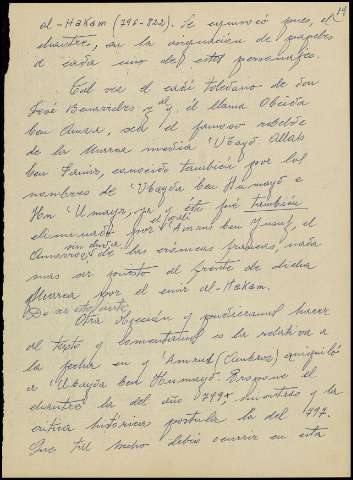 14
al-Hakam (796-822). Se equivocó pues, el
chantre, en la asignacion de papeles
a cada uno de estos personajes.
Tal vez el cadí toledano de don
José Benavides y al q. él llama Obeida
ben Amza, sea el famoso rebelde
de la Marca media 'Ubayd Allah
ben Jamir, conocido también por los
nombres de 'Ubayda ben Humayd e
Ibn 'Umayr, ya q. éste fué también
eliminado por el walí 'Amrus ben Yusuf, el
Amorroz, sin duda, de las crónicas francas, nada
mas ser puesto al frente de dicha
Marca por el emir al-Hakam.
De ser esto cierto,
Otra objeción q pudiéramos hacer
al texto y comentarios es la relativa a
la fecha en q 'Amrus (Ambroz) aniquiló
a 'Ubayda ben Humayd. Propone el
chantre la del año 799, mientras q la
crítica histórica postula la del 797.
Que tal hecho debió ocurrir en esta